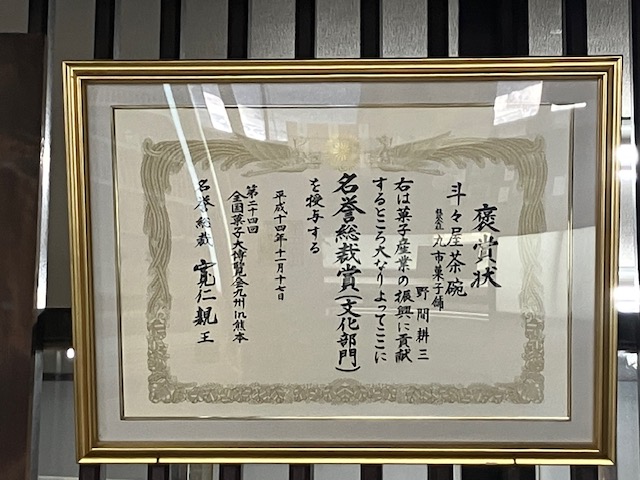 褒賞状
斗々屋茶碗
株式会社 丸市菓子舗
野間耕三
右は菓子産業の振興に貢献
するところ大なりよってここに
名誉総裁賞(文化部門)
を授与する
平成十四年十一月十七日
第二十四回
全国菓子大博覧会九州in熊本
名誉総裁 寛仁親王